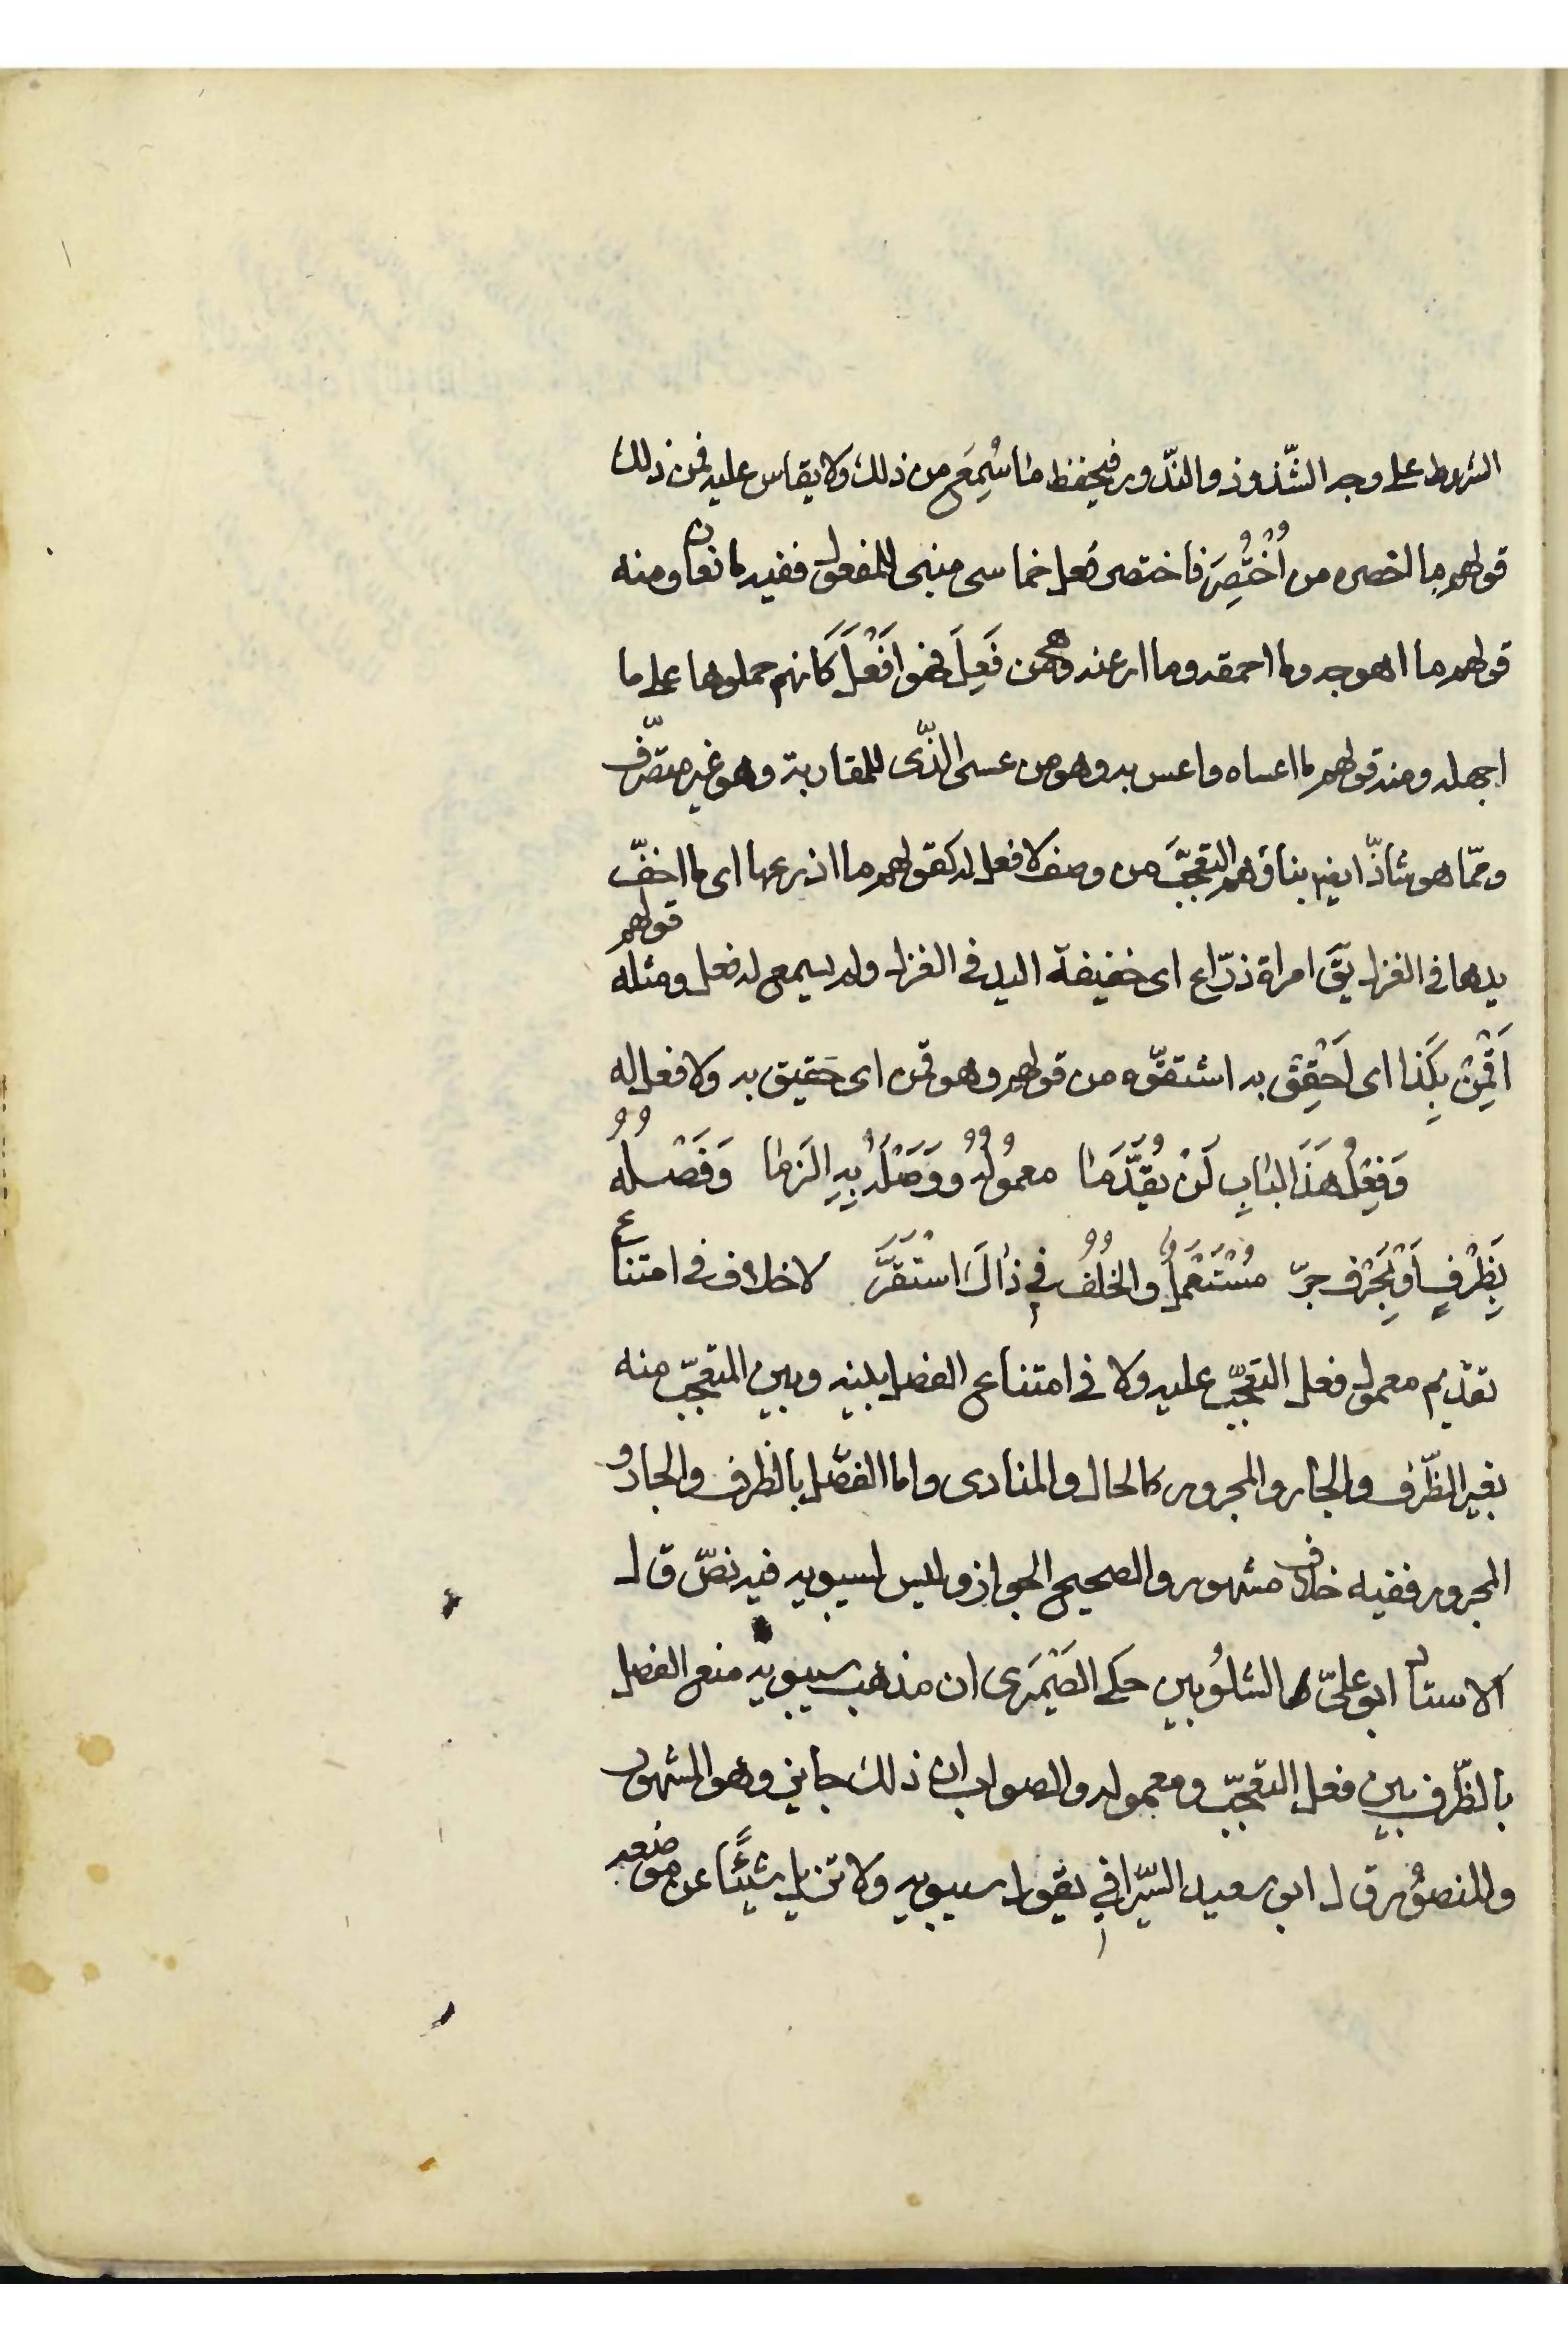 الشروط على وجه الشّذوذ والنّدور فيحفظ ما سُمِعَ من ذلك ولا يقاس عليه فمن ذلك
قولهم ما اخصره من اُخْتُصِرَ فاختصر فعل خماسى مبنى للمفعول ففيه مانعان ومنه
قولهم ما اهوجه وما احمقه وما ارعنه وهى من فَعِلَ فهو اَفْعَلَ كَانهم حملوها على ما
اجهله ومنه قولهم ما اعساه واعس به وهو من عسى الذّى للمقاربة وهو غير متصّرف
وممّا هو شاذّ ايضا بناؤهم التعجّبَ من وصف لا فعل له كقولهم ما اذرعها اى ما اخفّ
يدها فى الغزل يقَ امراة ذرّاع اى خفيفة اليد فى الغزل ولم يسمع له فعل ومثله قولهم
اَقْمِنْ بِكَذا اى اَحْقِقْ به اشتقّوه من قولهم وهو قمن اى حَقيق به ولا فعل له
وَفِعْلُ هَذَا البابِ لَنْ يُقَدَّمَا معمُولُهُ وَوَصْلَهُ بِهِ الزَما وَفَصْلُهُ
بِظَرْفٍ اَوْ بِحَرْفِ جرّ مُسْتَعْمَلٌ والخُلْفُ فِي ذاكَ اسْتَقَرَّ لا خلاف فى امتناع
تقديم معمول فعل التعجّب عليه ولا فى امتناع الفصل بينه وبين المتعجّب منه
بغير الظّرف والجار والمجرور كالحال والمنادى واما الفصّل بالظرف والجار و
المجرور ففيه خلاف مشهور والصحيح الجواز وليس لسيبويه فيه نصّ قال
الاستاد ابو علىّ الشلُوبين حكى الصَيْمَرى ان مذهب سيبويه منع الفصل
بالظّرف بين فعل التعجّب ومعموله والصواب ان ذلك جايز وهو المشهور
والمنصوُر قال ابو سعيد السّيرافي بقول سيبويه ولا تزيل شيئًا عن موضعه